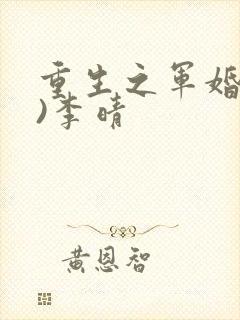 重生之军婚
)李晴
黄恩智